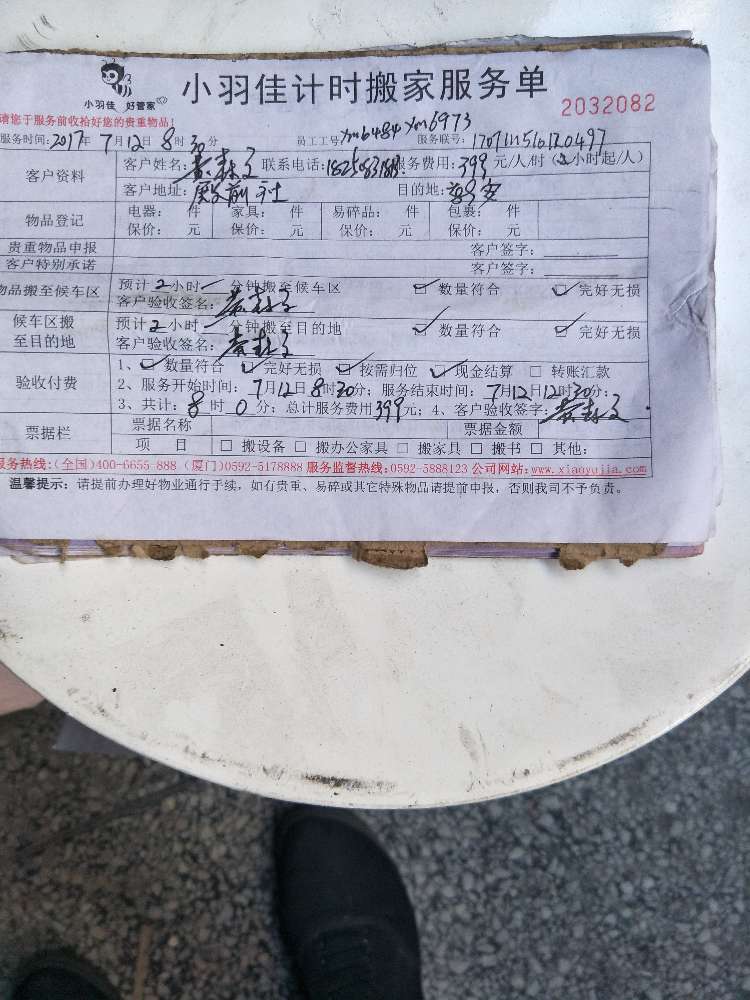 小羽佳 好管家
小羽佳计时搬家服务单
2032082
请您于服务前收拾好您的贵重物品!
服务时间:2017年7月12日8时30分 员工工号:xm6484 xm6973 服务联号:
客户资料
客户姓名: 联系电话: 服务费用:399元/人/时(2小时起/人)
客户地址: 目的地:
物品登记
电器: 件 家具: 件 易碎品: 件 包裹: 件
保价: 元 保价: 元 保价: 元 保价: 元
贵重物品申报 客户签字:
客户特别承诺 客户签字:
物品搬至候车区
预计2小时一分钟搬至候车区 ☑数量符合 ☑完好无损
客户验收签名:
候车区搬至目的地
预计2小时一分钟搬至目的地 ☑数量符合 ☑完好无损
客户验收签名:
验收付费
1、☑数量符合 ☑完好无损 ☑按需归位 ☑现金结算 □转账汇款
2、服务开始时间:7月12日8时30分;服务结束时间:7月12日12时30分;
3、共计:8时0分;总计服务费用399元;4、客户验收签字:
票据栏
票据名称 票据金额
项 目 □搬设备 □搬办公家具 □搬家具 □搬书 □其他:
服务热线:(全国)400-6655 888 (厦门)0592-5178888 服务监督热线:0592-5888123 公司网站:www.xiaoyujia.com
温馨提示:请提前办理好物业通行手续,如有贵重、易碎或其它特殊物品请提前申报,否则我司不予负责。